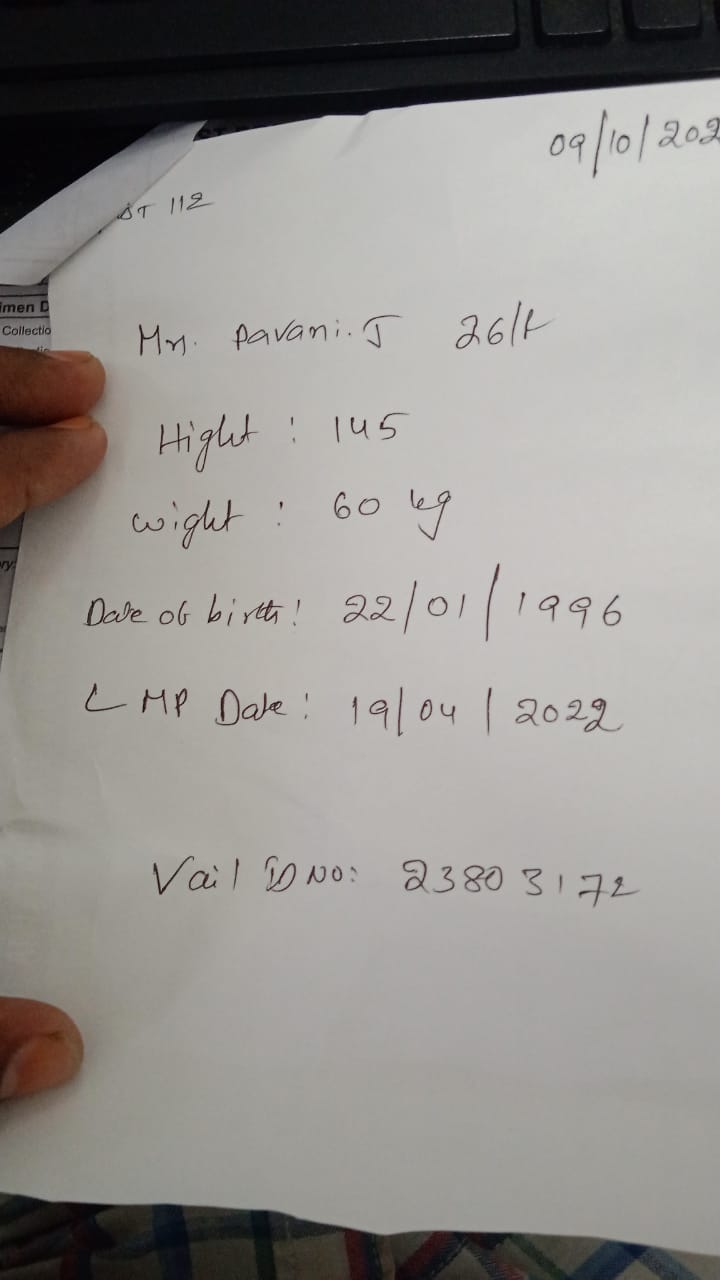 09/10/202
ST 112
Mrs. Pavani. J 26/F
Hight : 145
wight : 60 kg
Date of birth: 22/01/1996
LMP Date: 19/04/2022
Vail ID NO: 23803172
imen D
Collectio